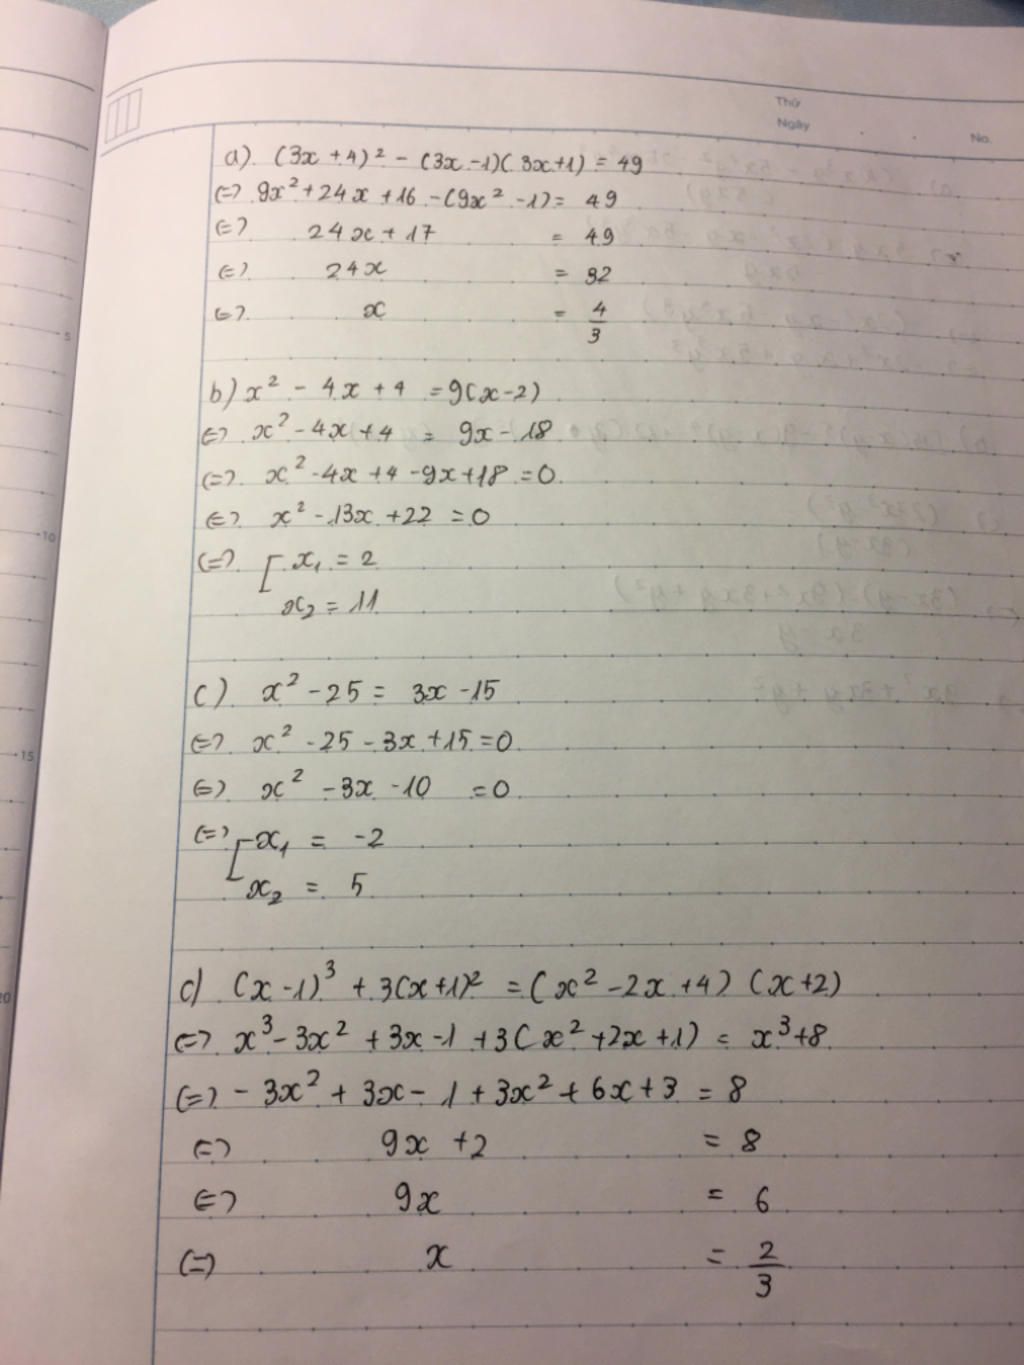 Thứ
Ngày
No.
a). (3x + 4)² - (3x - 1)(3x+1) = 49
(=) 9x² + 24x + 16 - (9x² - 1) = 49
(=) 24x + 17 = 49
(=) 24x = 32
(=) x = 4/3
b) x² - 4x + 4 = 9(x-2)
(=) x² - 4x + 4 = 9x - 18
(=) x² - 4x + 4 - 9x + 18 = 0
(=) x² - 13x + 22 = 0
(=) [ x₁ = 2
x₂ = 11
c) x² - 25 = 3x - 15
(=) x² - 25 - 3x + 15 = 0
(=) x² - 3x - 10 = 0
(=) [ x₁ = -2
x₂ = 5
d) (x - 1)³ + 3(x+1)² = (x² - 2x + 4) (x+2)
(=) x³ - 3x² + 3x - 1 + 3(x² + 2x + 1) = x³ + 8
(=) - 3x² + 3x - 1 + 3x² + 6x + 3 = 8
(=) 9x + 2 = 8
(=) 9x = 6
(=) x = 2/3
5
10
15
20